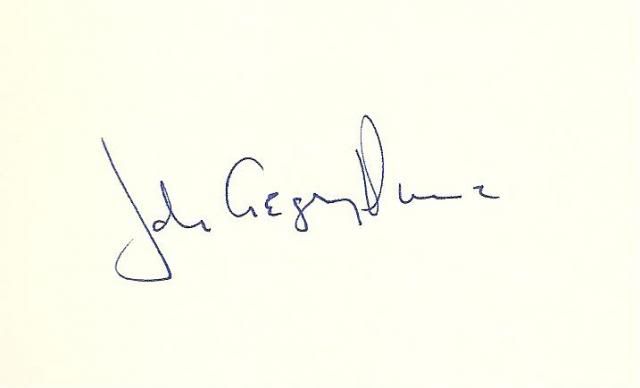 John Gregory Dunne